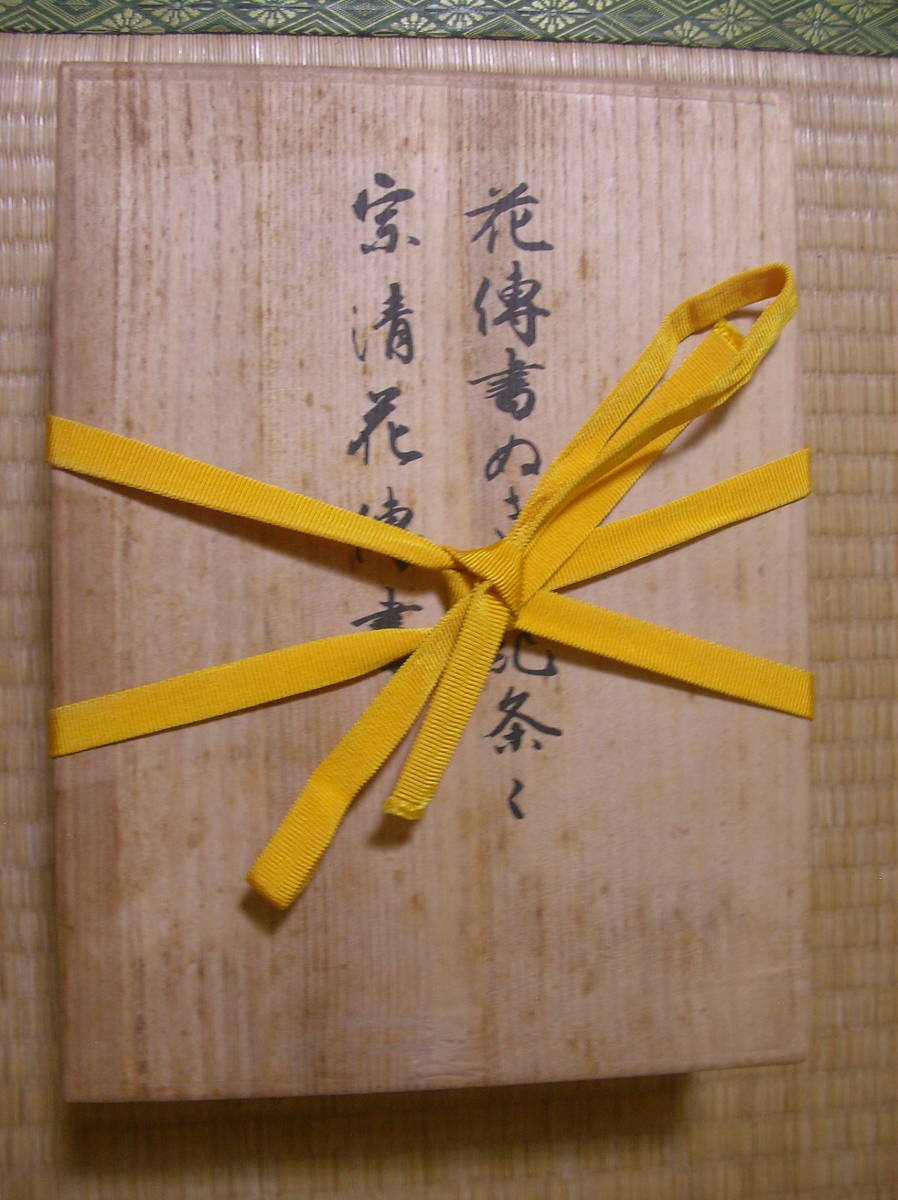 花傳書ぬき 条〻
宗清花傳書